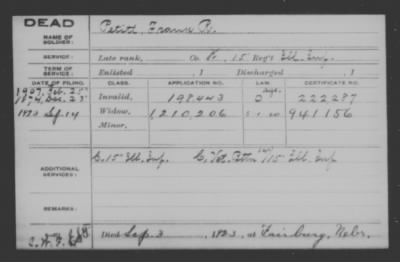 DEAD
NAME OF SOLDIER: Petit, Frank B.
SERVICE: Late rank, Co. G, 15 Reg't Ill. Inf.
TERM OF SERVICE: Enlisted , 1 Discharged , 1
DATE OF FILING. CLASS. APPLICATION NO. LAW. CERTIFICATE NO.
1907, Feb. 25
1874, Dec. 23 Invalid, 198443 222287
1923 Sep. 14 Widow, 1210,206 941156
Minor,
ADDITIONAL SERVICES: G. 15" Ill. Inf. G. Vet. Battn 14/15 Ill. Inf.
REMARKS:
Died Sep. 3, 1923, at Fairbury, Nebr.